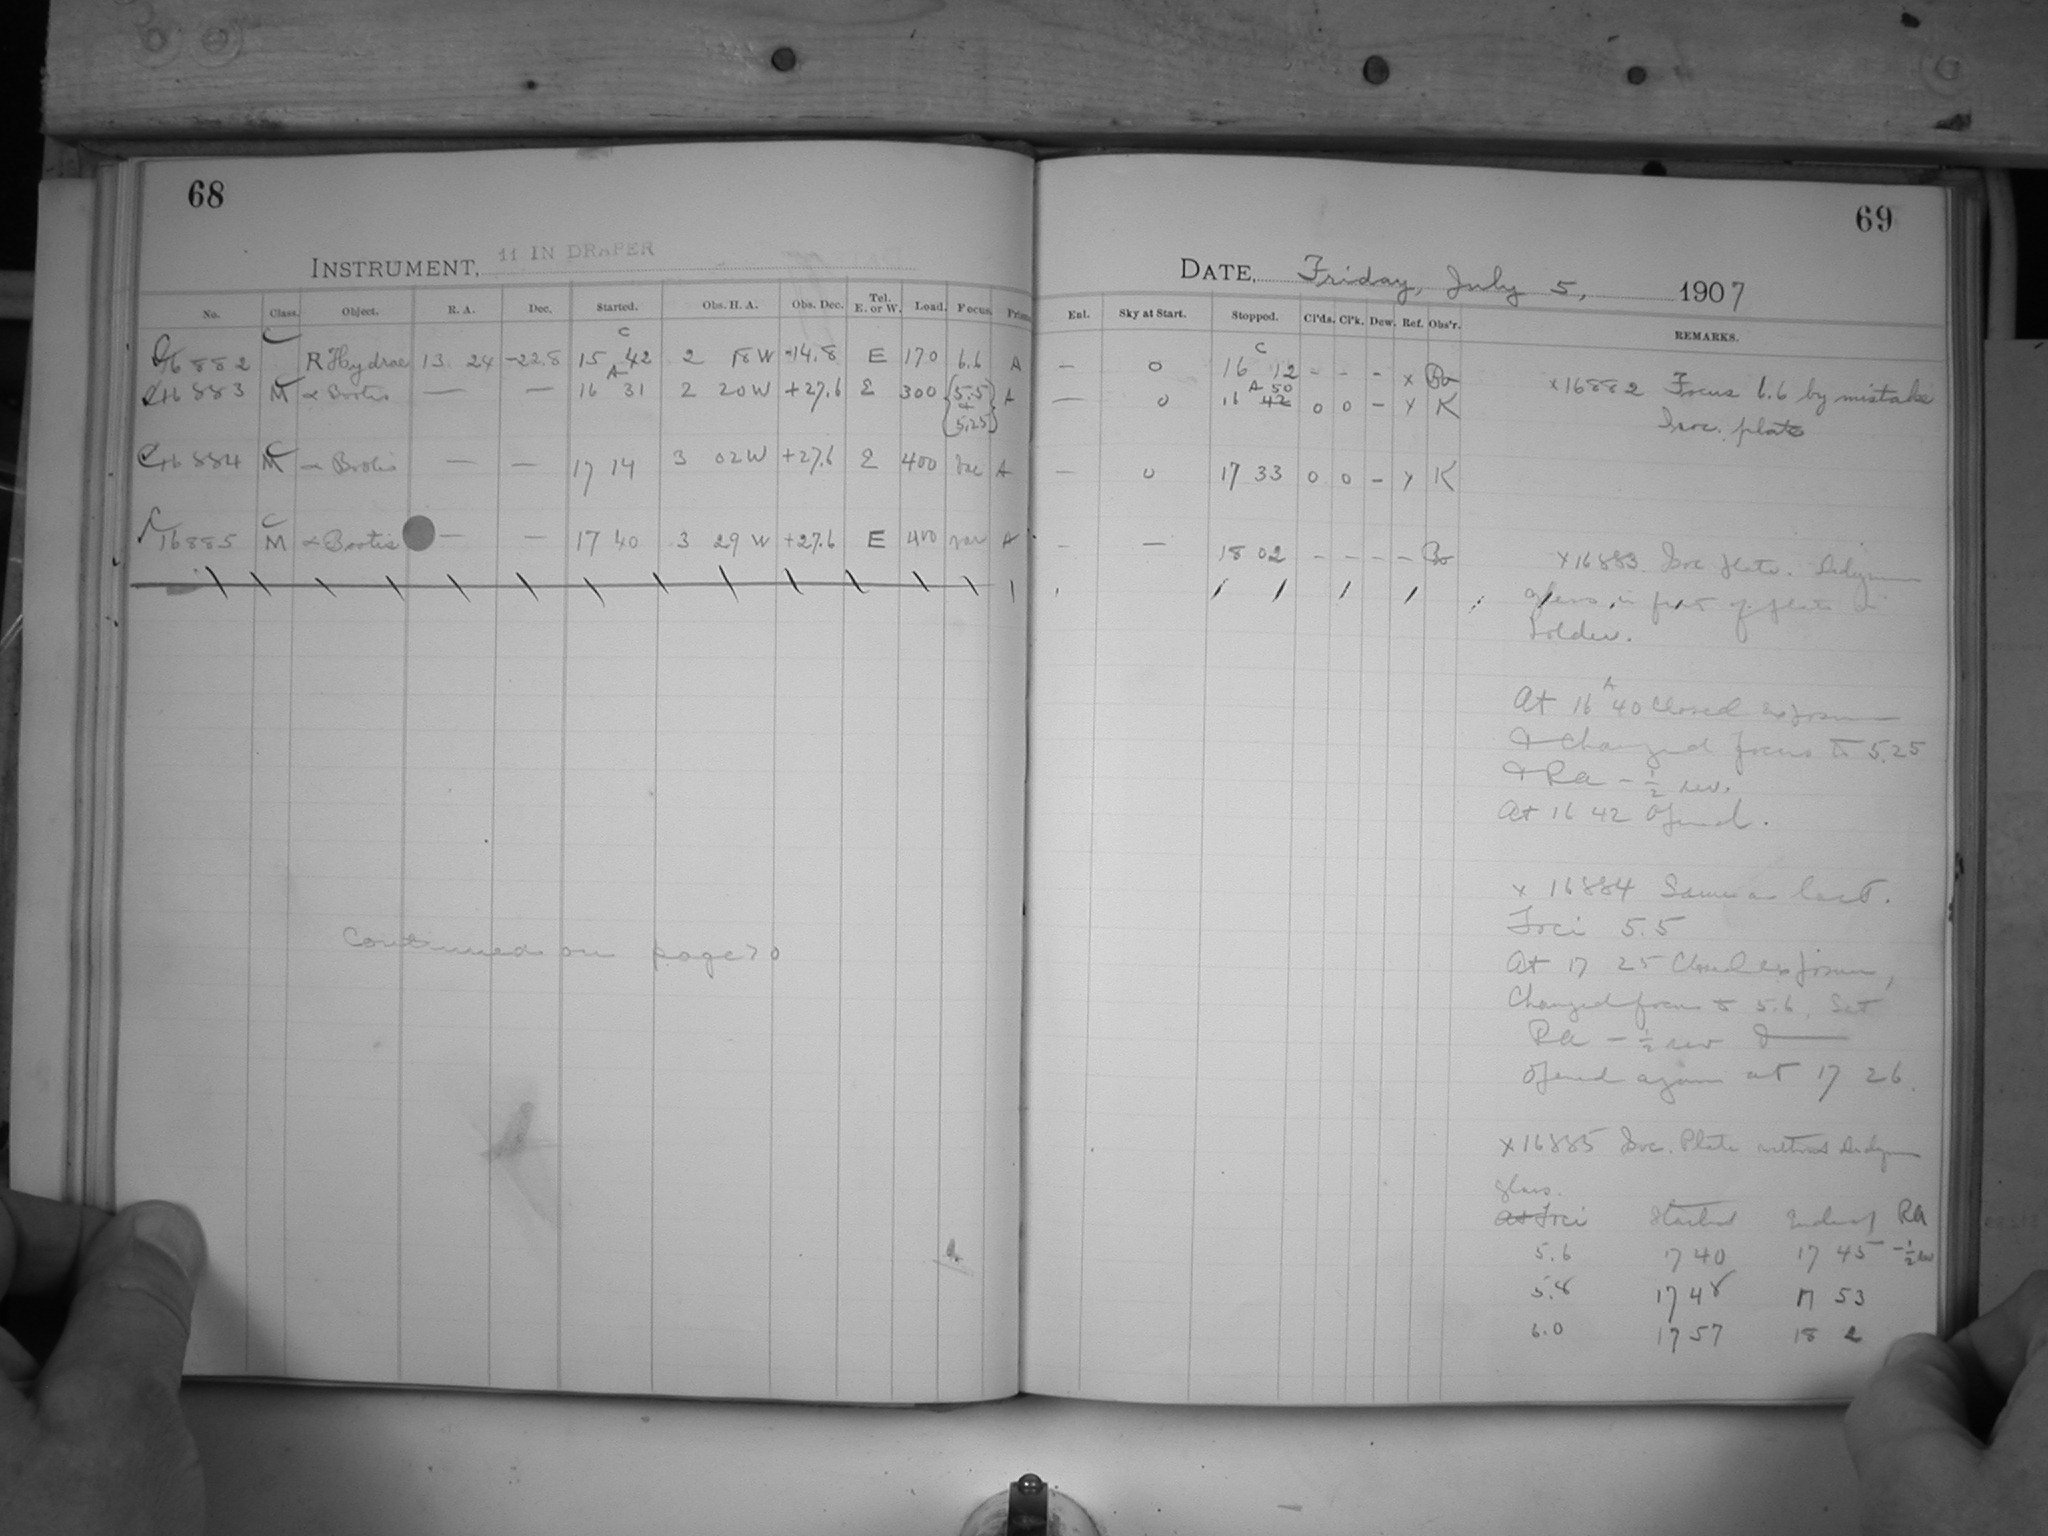 68
INSTRUMENT, 11 IN DRAPER
No. Class. Object. R. A. Dec. Started. Obs. H. A. Obs. Dec. Tel. E. or W. Load. Focus. Prism
C C
16882 R Hydrae 13 24 -22.8 15 42 2 18 W -14.8 E 170 6.6 A
A
16883 M α Bootis — — 16 31 2 20 W +27.6 E 300 {5.5 + 5.25} A
C
16884 M α Bootis — — 17 14 3 02 W +27.6 E 400 var A
C
16885 M α Bootis — — 17 40 3 29 W +27.6 E 400 var A
Continued on page 70
69
DATE, Friday, July 5, 1907
Enl. Sky at Start. Stopped. Cl'ds. Cl'k. Dew. Ref. Obs'r. REMARKS.
C
— 0 16 12 - - - x Bo
A 50
— 0 16 42 0 0 - x K
— 0 17 33 0 0 - x K
— — 18 02 - - - - Bo
x16882 Focus 6.6 by mistake
Isoc. plate
x16883 Isoc plate. Didymium
glass in front of plate in
holder.
At 16 A 40 Closed exposure
& changed focus to 5.25
& Ra - 1/2 rev.
At 16 42 Opened.
x 16884 Same as last.
Foci 5.5
At 17 25 Closed exposure,
Changed focus to 5.6. Set
Ra - 1/2 rev &
opened again at 17 26.
x16885 Isoc. Plate without Didymium
glass.
At Foci Started Ended Ra
5.6 17 40 17 45 -1/2 rev
5.8 17 48 17 53
6.0 17 57 18 2